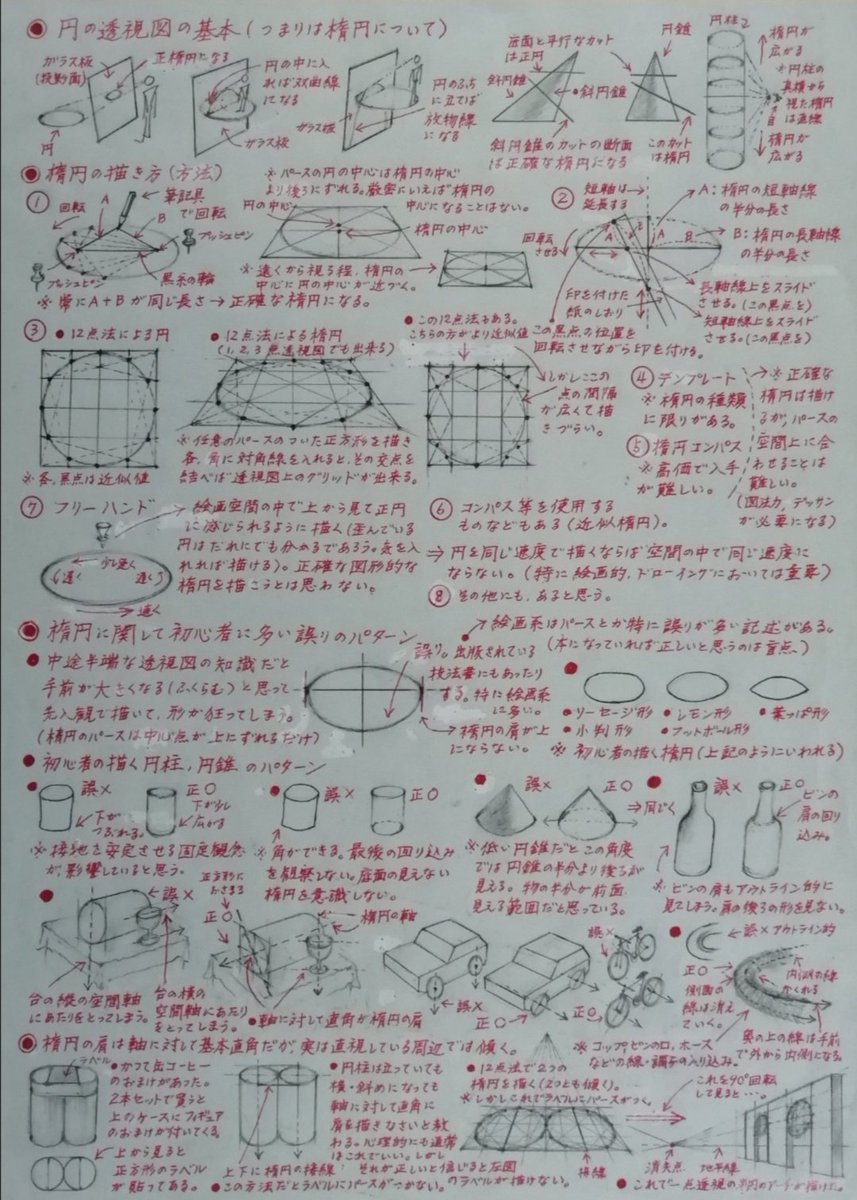 ◉ 円の透視図の基本(つまりは楕円について)
ガラス板
(投影面)
正楕円になる
円
円の中に入
れば双曲線
になる
ガラス板
円のふちに
に立てば
放物線
になる
ガラス板
底面と平行なカット
は正円
斜円錐
斜円錐
斜円錐のカットの断面
は正確な楕円になる
円錐
このカット
は楕円
円柱
楕円が
広がる
円柱の
真横から
視た楕円
は直線
楕円が
広がる
◉ 楕円の描き方(方法)
①
回転
A
筆記具
で回転
B
プッシュピン
プッシュピン
黒糸の輪
※常にA+Bが同じ長さ→正確な楕円になる。
※パースの円の中心は楕円の中心
より後ろにずれる。厳密にいえば楕円の
中心になることはない。
円の中心
楕円の中心
※遠くから視る程、楕円の
中心に円の中心が近づく。
②
短軸は
延長する
回転
させる
A
B
A
B
A:楕円の短軸線
の半分の長さ
B:楕円の長軸線
の半分の長さ
印を付けた
紙のしおり
長軸線上をスライド
させる。(この黒点を)
短軸線上をスライド
させる。(この黒点を)
この黒点の位置を
回転させながら印を付ける。
③
●12点法による円
※各、黒点は近似値
●12点法による楕円
(1,2,3点透視図でも出来る)
※任意のパースのついた正方形を描き
各、角に対角線を入れると、その交点を
結べば透視図上のグリッドが出来る。
●この12点法もある。
こちらの方がより近似値
しかしここの
点の間隔
が広くて描
きづらい。
④テンプレート
※楕円の種類
に限りがある。
⑤楕円コンパス
※高価で入手
が難しい。
※正確な
楕円は描け
るが、パースの
空間上に合
わせることは
難しい。
(図法力、デッサン
が必要になる)
⑦フリーハンド
少し速く
遅く
遅く
速く
絵画空間の中で上から見て正円
に感じられるように描く(歪んでいる
円はだれにでも分かるであろう。気を入
れれば描ける)。正確な図形的な
楕円を描こうとは思わない。
⑥コンパス等を使用する
ものなどもある(近似楕円)。
⇒円を同じ速度で描くならば空間の中で同じ速度に
ならない。(特に絵画的、ドローイングにおいては重要)
⑧その他にも、あると思う。
◉ 楕円に関して初心者に多い誤りのパターン
●中途半端な透視図の知識だと
手前が大きくなる(ふくらむ)と思って
先入観で描いて、形が狂ってしまう。
(楕円のパースは中心点が上にずれるだけ)
誤り。出版されている
技法書にもあったり
する。特に絵画系
に多い。
絵画系はパースとか特に誤りが多い記述がある。
(本になっていれば正しいと思うのは盲点)
楕円の肩が上
にならない。
●ソーセージ形
●小判形
●レモン形
●フットボール形
●葉っぱ形
※初心者の描く楕円(上記のようにいわれる)
●初心者の描く円柱、円錐のパターン
誤×
下が
つぶれる。
正○
下が少し
広がる
※接地を安定させる固定観念
が影響していると思う。
誤×
正○
※角ができる。最後の回り込み
を観察しない。底面の見えない
楕円を意識しない。
誤×
正○
⇒同じく
※低い円錐だとこの角度
では円錐の半分より後ろが
見える。物の半分が前面、
見える範囲だと思っている。
誤×
正○
ビンの
肩の回り
込み。
※ビンの肩もアウトライン的に
見てしまう。肩の後ろの形を見ない。
誤×
台の縦の空間軸
にあたりをとってしまう。
台の横の
空間軸にあたり
をとってしまう。
正方形に
おさまる
正○
楕円の軸
●軸に対して直角が楕円の肩
誤×
正○
誤×
正○
誤×アウトライン的
正○
側面の
線は消え
ていく。
内側の線
かくれる
※コップ、ビンの口、ホース
などの線・調子の入り込み。
奥の上の線は手前
で外から内側になる。
◉ 楕円の肩は軸に対して基本直角だが、実は直視している周辺では傾く。
ラベル
●かつて缶コーヒー
のおまけがあった。
2本セットで買うと
上のケースにフィギュア
のおまけが付いてくる。
●上から見ると
正方形のラベル
が貼ってある。
●円柱は立っていても
横・斜めになっても
軸に対して直角に
肩を描きなさいと教
わる。心理的にも通常
はこれでいい。しかし
それが正しいと信じると左図
のラベルが描けない。
上下に楕円の接線
●この方法だとラベルにパースがつかない。
●12点法で2つの
楕円を描く(2つとも傾く)。
※しかしこれでラベルにパースがつく。
接線
これを90°回転
して見ると…。
消失点
地平線
●これで一点透視の半円のアーチが描けた。